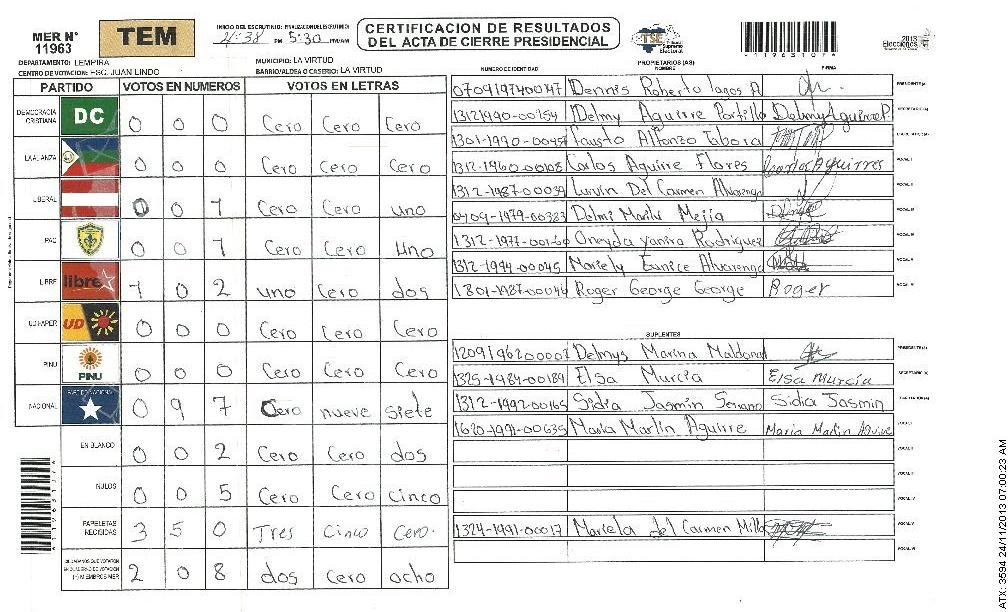 MER N° 11963
TEM
INICIO DEL ESCRUTINIO: FINALIZACION DEL ESCRUTINIO:
4:38 PM 5:30 PM/AM
CERTIFICACION DE RESULTADOS
DEL ACTA DE CIERRE PRESIDENCIAL
TSE
Tribunal Supremo Electoral
2013
Elecciones
DEPARTAMENTO: LEMPIRA
MUNICIPIO: LA VIRTUD
CENTRO DE VOTACION: ESC. JUAN LINDO
BARRIO/ALDEA O CASERIO: LA VIRTUD
PARTIDO VOTOS EN NUMEROS VOTOS EN LETRAS
DEMOCRACIA CRISTIANA DC 0 0 0 Cero Cero Cero
LA ALIANZA 0 0 0 Cero Cero Cero
LIBERAL 0 0 1 Cero Cero uno
PAC 0 0 1 Cero Cero Uno
LIBRE libre 1 0 2 uno Cero dos
UD-FAPER UD 0 0 0 Cero Cero Cero
PINU PINU 0 0 0 Cero Cero Cero
NACIONAL 0 9 7 Cero nueve siete
EN BLANCO 0 0 2 Cero Cero dos
NULOS 0 0 5 Cero Cero Cinco
PAPELETAS RECIBIDAS 3 5 0 Tres Cinco Cero.
CIUDADANOS QUE VOTARON EN CUADERNO DE VOTACION (+) MIEMBROS MER 2 0 8 dos Cero ocho
PROPIETARIOS (AS)
NUMERO DE IDENTIDAD NOMBRE FIRMA
0709197400047 Dennis Roberto lagos A PRESIDENTE (A)
Delmy Aguirre Portillo Delmy Aguirre P. SECRETARIO (A)
Fausto Alfonzo Tabora
1312-1960-00008 Carlos Aguirre Flores Carlos Aguirres VOCAL I
1312-1987-00034 Lurvin Del Carmen Alvarenga VOCAL II
0409-1979-00383 Delmi Marilu Mejia VOCAL III
Oneyda yanira Rodriguez VOCAL IV
1312-1994-00045 Mariely Eunice Alvarenga VOCAL V
Roger George George Roger VOCAL VI
SUPLENTES
Delmys Marina PRESIDENTE (A)
1325-1984-00189 Elsa Murcia Elsa Murcia SECRETARIO (A)
1312-1992-00165 Sidia Jasmin Serrano Sidia Jasmin
1620-1991-00635 Maria Marlin Aguirre Maria Marlin VOCAL I
VOCAL II
VOCAL III
VOCAL IV
1324-1991-00017 Mariela del Carmen VOCAL V
VOCAL VI
ATX: 3594 24/11/2013 07:00:23 AM